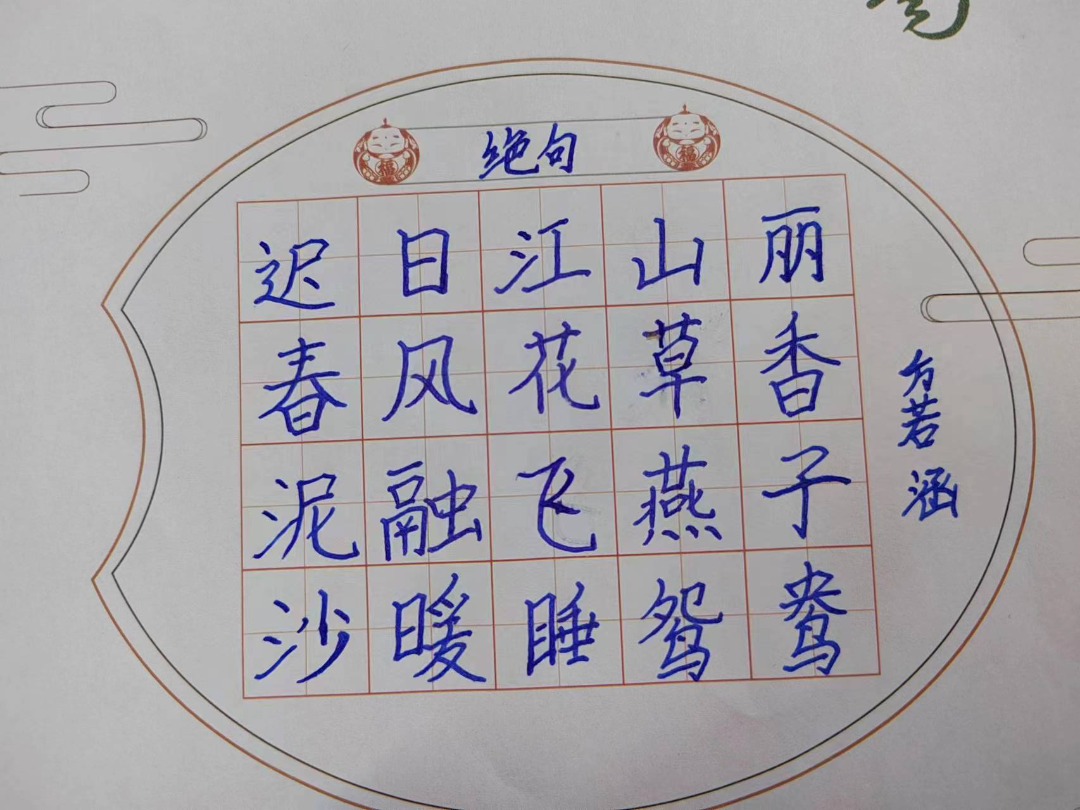 绝句
迟日江山丽
春风花草香
泥融飞燕子
沙暖睡鸳鸯
方若涵